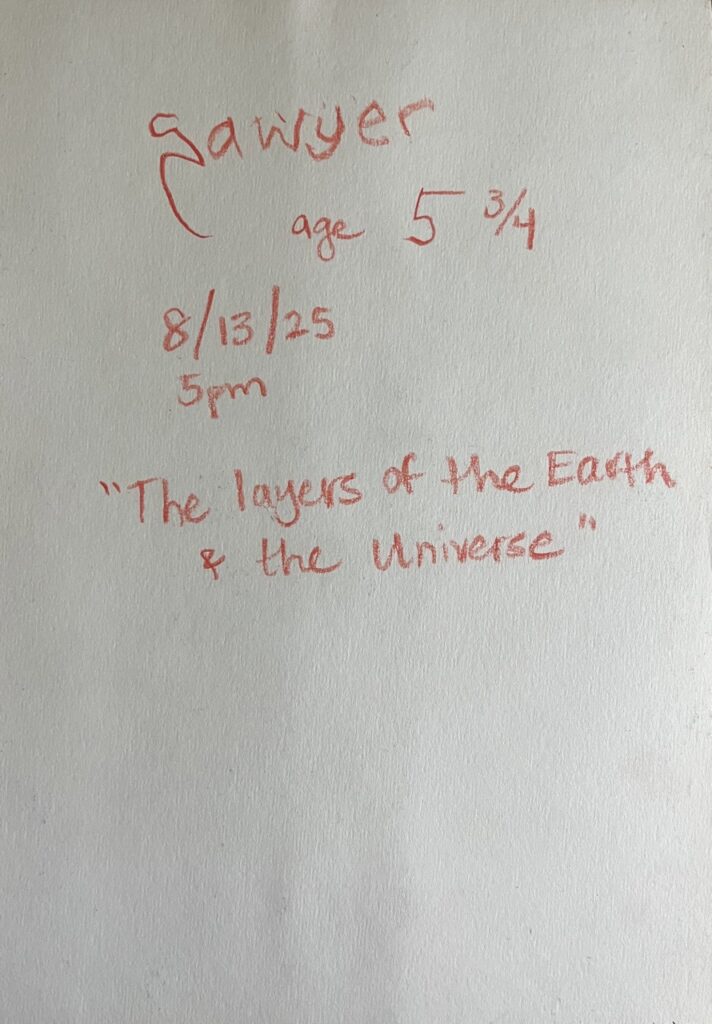 Sawyer
age 5 3/4
8/13/25
5pm
"The layers of the Earth
& the Universe"